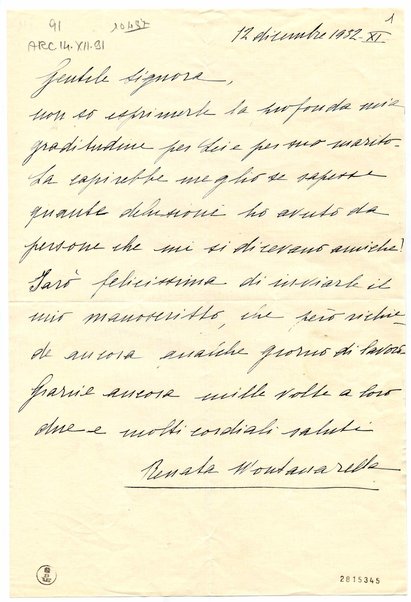 91
10437
1
ARC.14.XII.91
12 dicembre 1932-XI
Gentile Signora,
non so esprimerle la profonda mia
gratitudine per Lei e per suo marito-
La capirebbe meglio se sapesse
quante delusioni ho avuto da
persone che mi si dicevano amiche!
Sarò felicissima di inviarle il
mio manoscritto, che però richie-
de ancora qualche giorno di lavoro
Grazie ancora mille volte a loro
due e molti cordiali saluti
Renata
2815345